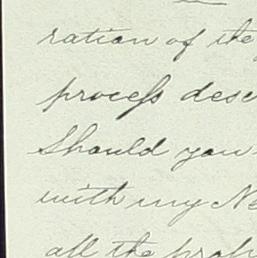 ration of the
process desc
Should you
with my Ne
all the prob